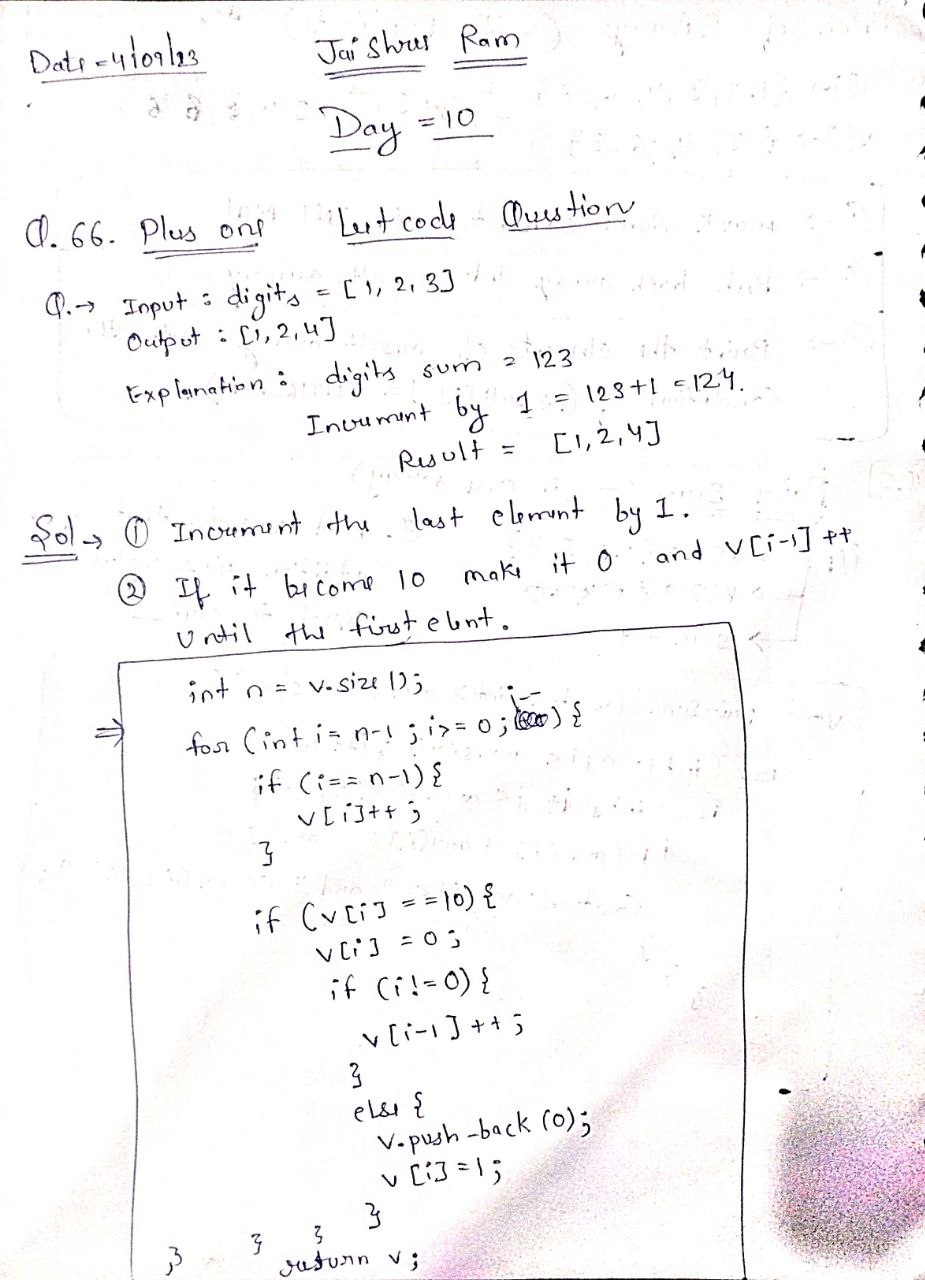 Date = 4/09/23
Jai Shree Ram
Day = 10
Q. 66. Plus one Leetcode Question
Q.→ Input : digits = [1, 2, 3]
Output : [1, 2, 4]
Explanation : digits sum = 123
Increment by 1 = 123+1 = 124.
Result = [1, 2, 4]
Sol → ① Increment the last element by 1.
② If it become 10 make it 0 and v[i-1]++
Until the first elent.
int n = v.size();
⇒ for (int i = n-1 ; i >= 0 ; i--) {
if (i == n-1) {
v[i]++ ;
}
if (v[i] == 10) {
v[i] = 0 ;
if (i != 0) {
v[i-1]++ ;
}
else {
v.push-back (0);
v[i] = 1 ;
}
} } }
return v ;